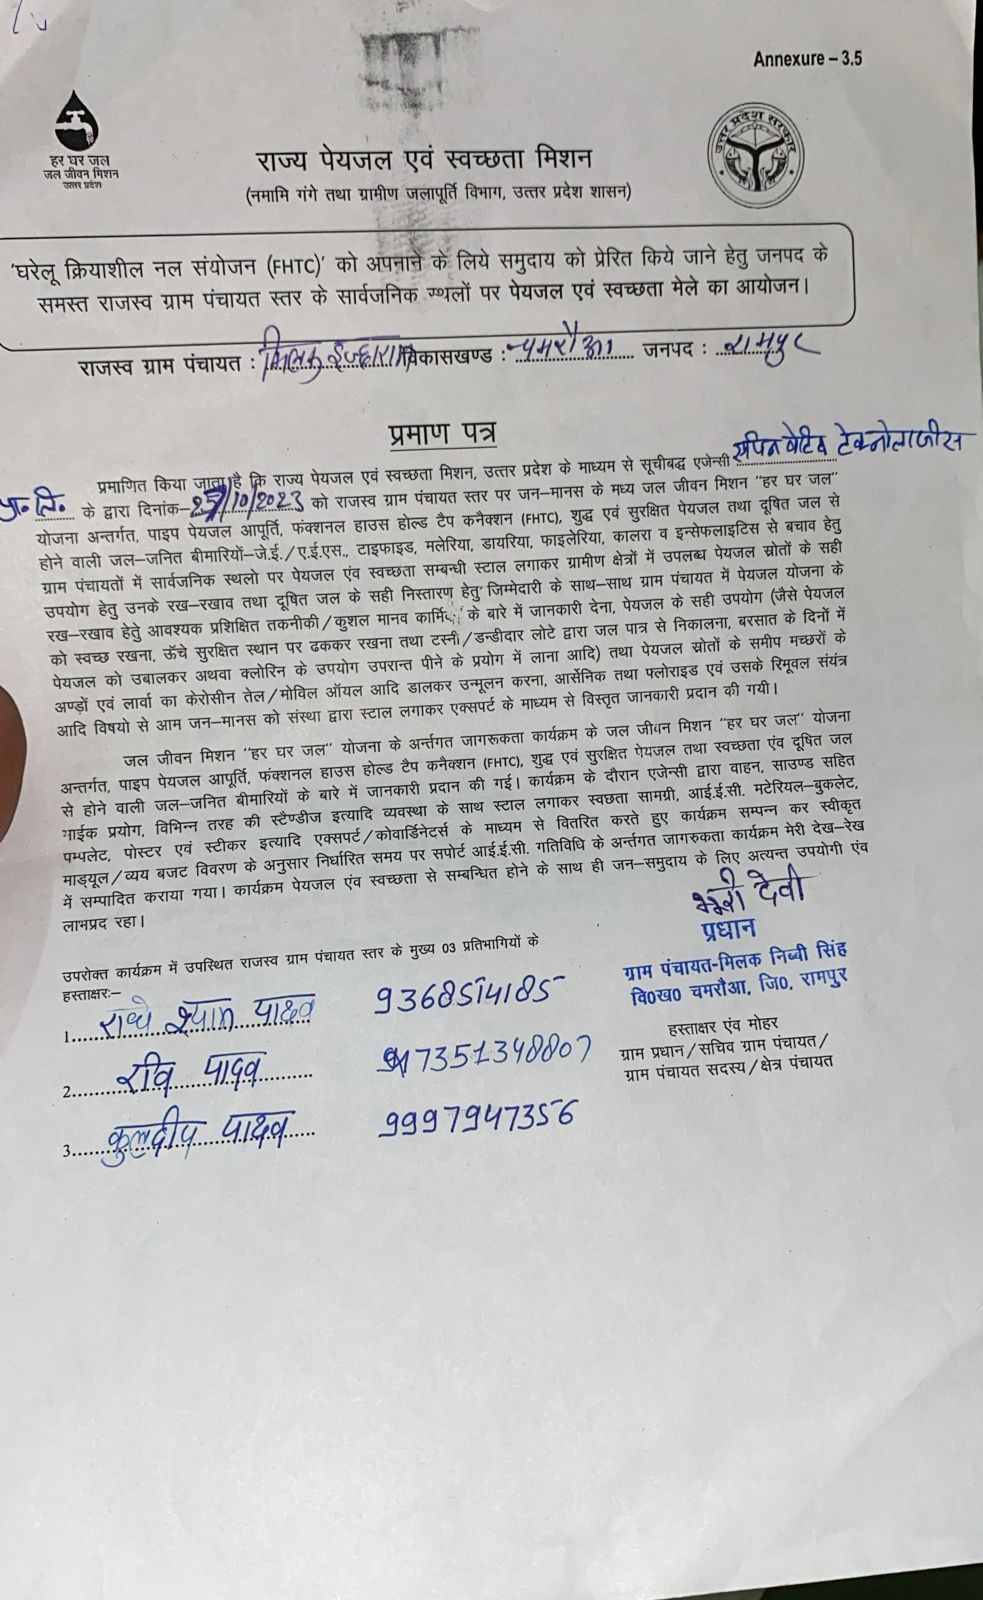 Annexure – 3.5
हर घर जल
जल जीवन मिशन
उत्तर प्रदेश
उत्तर प्रदेश सरकार
राज्य पेयजल एवं स्वच्छता मिशन
(नमामि गंगे तथा ग्रामीण जलापूर्ति विभाग, उत्तर प्रदेश शासन)
'घरेलू क्रियाशील नल संयोजन (FHTC)' को अपनाने के लिये समुदाय को प्रेरित किये जाने हेतु जनपद के
समस्त राजस्व ग्राम पंचायत स्तर के सार्वजनिक स्थलों पर पेयजल एवं स्वच्छता मेले का आयोजन।
राजस्व ग्राम पंचायत : मिलक विकासखण्ड : चमरौआ जनपद : रामपुर
प्रमाण पत्र
प्रमाणित किया जाता है कि राज्य पेयजल एवं स्वच्छता मिशन, उत्तर प्रदेश के माध्यम से सूचीबद्ध एजेन्सी टेक्नोलाजीस
प्रा. लि. के द्वारा दिनांक–/10/2023 को राजस्व ग्राम पंचायत स्तर पर जन–मानस के मध्य जल जीवन मिशन "हर घर जल"
योजना अन्तर्गत, पाइप पेयजल आपूर्ति, फंक्शनल हाउस होल्ड टैप कनैक्शन (FHTC), शुद्ध एवं सुरक्षित पेयजल तथा दूषित जल से
होने वाली जल–जनित बीमारियों–जे.ई./ए.ई.एस., टाइफाइड, मलेरिया, डायरिया, फाइलेरिया, कालरा व इन्सेफलाइटिस से बचाव हेतु
ग्राम पंचायतों में सार्वजनिक स्थलो पर पेयजल एंव स्वच्छता सम्बन्धी स्टाल लगाकर ग्रामीण क्षेत्रों में उपलब्ध पेयजल स्रोतों के सही
उपयोग हेतु उनके रख–रखाव तथा दूषित जल के सही निस्तारण हेतु जिम्मेदारी के साथ–साथ ग्राम पंचायत में पेयजल योजना के
रख–रखाव हेतु आवश्यक प्रशिक्षित तकनीकी/कुशल मानव के बारे में जानकारी देना, पेयजल के सही उपयोग (जैसे पेयजल
को स्वच्छ रखना, ऊँचे सुरक्षित स्थान पर ढककर रखना तथा टस्नी/डन्डीदार लोटे द्वारा जल पात्र से निकालना, बरसात के दिनों में
पेयजल को उबालकर अथवा क्लोरिन के उपयोग उपरान्त पीने के प्रयोग में लाना आदि) तथा पेयजल स्रोतों के समीप मच्छरों के
अण्डों एवं लार्वा का केरोसीन तेल/मोविल ऑयल आदि डालकर उन्मूलन करना, आर्सेनिक तथा फ्लोराइड एवं उसके रिमूवल संयंत्र
आदि विषयो से आम जन–मानस को संस्था द्वारा स्टाल लगाकर एक्सपर्ट के माध्यम से विस्तृत जानकारी प्रदान की गयी।
जल जीवन मिशन "हर घर जल" योजना के अर्न्तगत जागरूकता कार्यक्रम के जल जीवन मिशन "हर घर जल" योजना
अन्तर्गत, पाइप पेयजल आपूर्ति, फंक्शनल हाउस होल्ड टैप कनैक्शन (FHTC), शुद्ध एवं सुरक्षित पेयजल तथा स्वच्छता एंव दूषित जल
से होने वाली जल–जनित बीमारियों के बारे में जानकारी प्रदान की गई। कार्यक्रम के दौरान एजेन्सी द्वारा वाहन, साउण्ड सहित
माईक प्रयोग, विभिन्न तरह की स्टैण्डीज इत्यादि व्यवस्था के साथ स्टाल लगाकर स्वछता सामग्री, आई.ई.सी. मटेरियल–बुकलेट,
पम्पलेट, पोस्टर एवं स्टीकर इत्यादि एक्सपर्ट/कोवार्डिनेटर्स के माध्यम से वितरित करते हुए कार्यक्रम सम्पन्न कर स्वीकृत
माड्यूल/व्यय बजट विवरण के अनुसार निर्धारित समय पर सपोर्ट आई.ई.सी. गतिविधि के अर्न्तगत जागरुकता कार्यक्रम मेरी देख–रेख
में सम्पादित कराया गया। कार्यक्रम पेयजल एंव स्वच्छता से सम्बन्धित होने के साथ ही जन–समुदाय के लिए अत्यन्त उपयोगी एंव
लाभप्रद रहा।
भूरी देवी
प्रधान
ग्राम पंचायत-मिलक निब्बी सिंह
वि0ख0 चमरौआ, जि0, रामपुर
हस्ताक्षर एंव मोहर
ग्राम प्रधान/सचिव ग्राम पंचायत/
ग्राम पंचायत सदस्य/क्षेत्र पंचायत
उपरोक्त कार्यक्रम में उपस्थित राजस्व ग्राम पंचायत स्तर के मुख्य 03 प्रतिभागियों के
हस्ताक्षरः–
1. राधे श्याम यादव 9368514185
2. रवि यादव 7351348807
3. कुलदीप यादव 9997947356